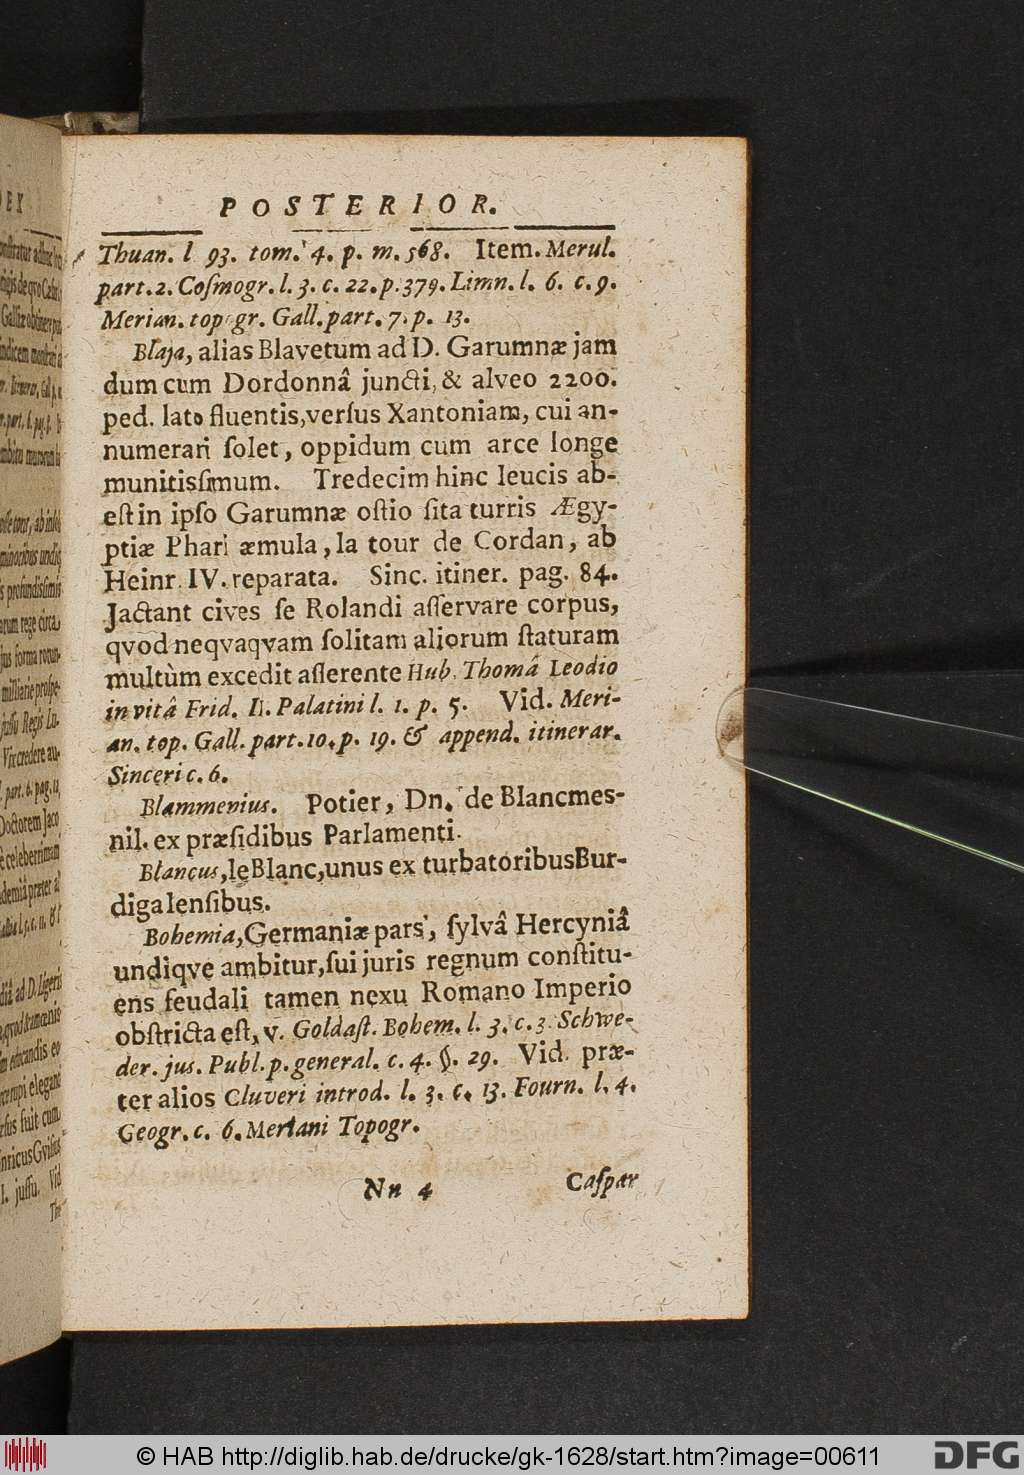 POSTERIOR.
Thuan. l 93. tom. 4. p. m. 568. Item. Merul.
part. 2. Cosmogr. l. 3. c. 22. p. 379. Limn. l. 6. c. 9.
Merian. topogr. Gall. part. 7. p. 13.
Blaja, alias Blavetum ad D. Garumnæ jam
dum cum Dordonnâ juncti, & alveo 2200.
ped. lato fluentis, verſus Xantoniam, cui an-
numerari ſolet, oppidum cum arce longe
munitisſimum. Tredecim hinc leucis ab-
eſt in ipſo Garumnæ oſtio ſita turris Ægy-
ptiæ Phari æmula, la tour de Cordan, ab
Heinr. IV. reparata. Sinc. itiner. pag. 84.
Jactant cives ſe Rolandi aſſervare corpus,
qvod neqvaqvam ſolitam aliorum ſtaturam
multùm excedit aſſerente Hub. Thomâ Leodio
in vitâ Frid. II. Palatini l. 1. p. 5. Vid. Meri-
an. top. Gall. part. 10. p. 19. & append. itinerar.
Sinceri c. 6.
Blammenius. Potier, Dn. de Blancmes-
nil. ex præſidibus Parlamenti.
Blancus, le Blanc, unus ex turbatoribus Bur-
digalenſibus.
Bohemia, Germaniæ pars, ſylvâ Hercyniâ
undiqve ambitur, ſui juris regnum conſtitu-
ens feudali tamen nexu Romano Imperio
obſtricta eſt, v. Goldaſt. Bohem. l. 3. c. 3. Schwe-
der. jus. Publ. p. general. c. 4. §. 29. Vid. præ-
ter alios Cluveri introd. l. 3. c. 13. Fourn. l. 4.
Geogr. c. 6. Meriani Topogr.
Nn 4 Caſpar
© HAB http://diglib.hab.de/drucke/gk-1628/start.htm?image=00611
DFG